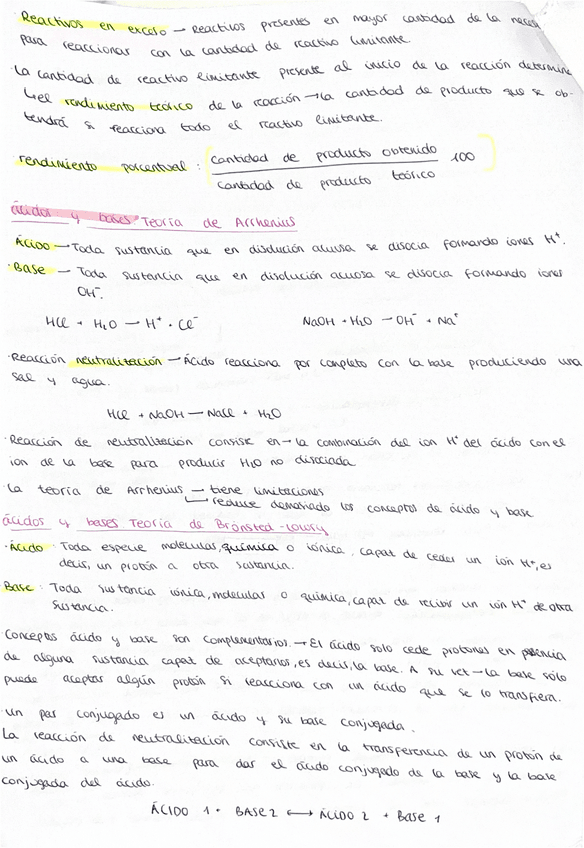 ·Reactivos en exceso → Reactivos presentes en mayor cantidad de la neces
para reaccionar con la cantidad de reactivo limitante.
·La cantidad de reactivo limitante presente al inicio de la reacción determine
↳el rendimiento teórico de la reacción → la cantidad de producto que se ob-
tendrá si reacciona todo el reactivo limitante.
·rendimiento porcentual : [cantidad de producto obtenido / cantidad de producto teórico] 100
ácidos y bases: Teoría de Arrhenius
·Ácido → Toda sustancia que en disolución acuosa se disocia formando iones H⁺.
·Base — Toda sustancia que en disolución acuosa se disocia formando iones
OH⁻.
HCl + H₂O → H⁺ · Cl⁻ NaOH + H₂O → OH⁻ + Na⁺
·Reacción neutralización → Ácido reacciona por completo con la base produciendo una
sal y agua.
HCl + NaOH → NaCl + H₂O
·Reacción de neutralización consiste en → la combinación del ion H⁺ del ácido con el
ion de la base para producir H₂O no disociada
·La teoría de Arrhenius → tiene limitaciones
↳ reduce demasiado los conceptos de ácido y base
ácidos y bases Teoría de Brönsted-Lowry
·Ácido : Toda especie molecular, química o iónica, capaz de ceder un ión H⁺, es
decir, un protón a otra sustancia.
Base : Toda sustancia iónica, molecular o química, capaz de recibir un ión H⁺ de otra
sustancia.
Conceptos ácido y base son complementarios. → El ácido solo cede protones en presencia
de alguna sustancia capaz de aceptarlos, es decir, la base. A su vez → la base sólo
puede aceptar algún protón si reacciona con un ácido que se lo transfiera.
·Un par conjugado es un ácido y su base conjugada.
La reacción de neutralización consiste en la transferencia de un protón de
un ácido a una base para dar el ácido conjugado de la base y la base
conjugada del ácido.
ÁCIDO 1 + BASE 2 ⟷ ÁCIDO 2 + Base 1